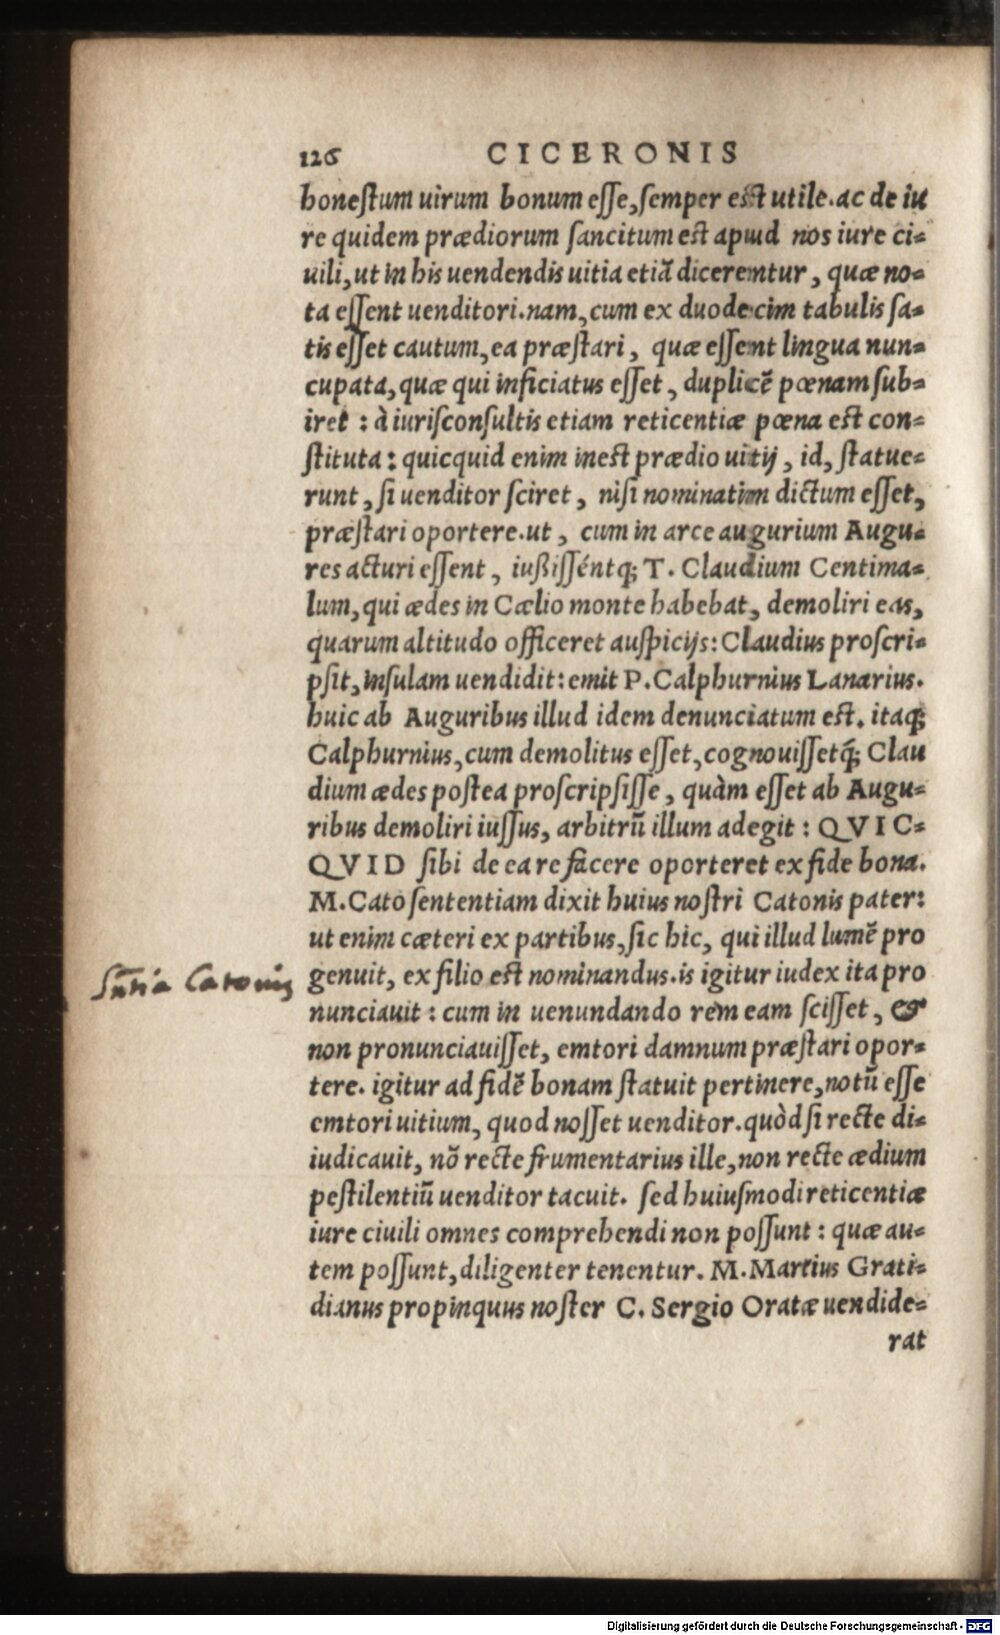 126 CICERONIS
honeſtum uirum bonum eſſe, ſemper eſt utile. ac de iu
re quidem prædiorum ſancitum eſt apud nos iure ci=
uili, ut in his uendendis uitia etiã dicerentur, quæ no=
ta eſſent uenditori. nam, cum ex duodecim tabulis ſa=
tis eſſet cautum, ea præſtari, quæ eſſent lingua nun=
cupata, quæ qui inficiatus eſſet, duplicẽ pœnam ſub=
iret : à iuriſconſultis etiam reticentiæ pœna eſt con=
ſtituta : quicquid enim ineſt prædio uitij, id, ſtatue=
runt, ſi uenditor ſciret, niſi nominatim dictum eſſet,
præſtari oportere. ut, cum in arce augurium Augu=
res acturi eſſent, iußiſſéntq; T. Claudium Centima=
lum, qui ædes in Cælio monte habebat, demoliri eas,
quarum altitudo officeret auſpicijs: Claudius proſcri=
pſit, inſulam uendidit: emit P. Calphurnius Lanarius.
huic ab Auguribus illud idem denunciatum eſt. itaq;
Calphurnius, cum demolitus eſſet, cognouiſſetq́; Clau
dium ædes poſtea proſcripſiſſe, quàm eſſet ab Augu=
ribus demoliri iuſſus, arbitrũ illum adegit : QVIC=
QVID ſibi de ea re facere oporteret ex fide bona.
M. Cato ſententiam dixit huius noſtri Catonis pater:
ut enim cæteri ex partibus, ſic hic, qui illud lumẽ pro
Sñtia Catonis
genuit, ex filio eſt nominandus. is igitur iudex ita pro
nunciauit : cum in uenundando rem eam ſciſſet, &
non pronunciauiſſet, emtori damnum præſtari opor=
tere. igitur ad fidẽ bonam ſtatuit pertinere, notũ eſſe
emtori uitium, quod noſſet uenditor. quòd ſi recte di=
iudicauit, nõ recte frumentarius ille, non recte ædium
peſtilentiũ uenditor tacuit. ſed huiuſmodi reticentiæ
iure ciuili omnes comprehendi non poſſunt : quæ au=
tem poſſunt, diligenter tenentur. M. Marius Grati=
dianus propinquus noſter C. Sergio Oratæ uendide=
rat
Digitalisierung gefördert durch die Deutsche Forschungsgemeinschaft - DFG